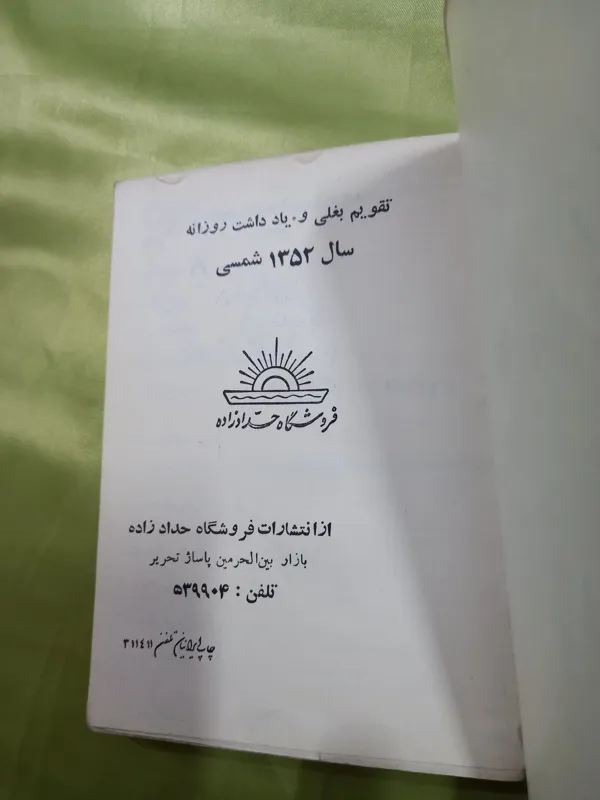 تقویم بغلی و یاد داشت روزانه
سال ۱۳۵۲ شمسی
فروشگاه حدادزاده
از انتشارات فروشگاه حداد زاده
بازار بین‌الحرمین پاساژ تحریر
تلفن : ۵۳۹۹۰۴
چاپ ایرانیان تلفن ۳۱۱۴۱۱